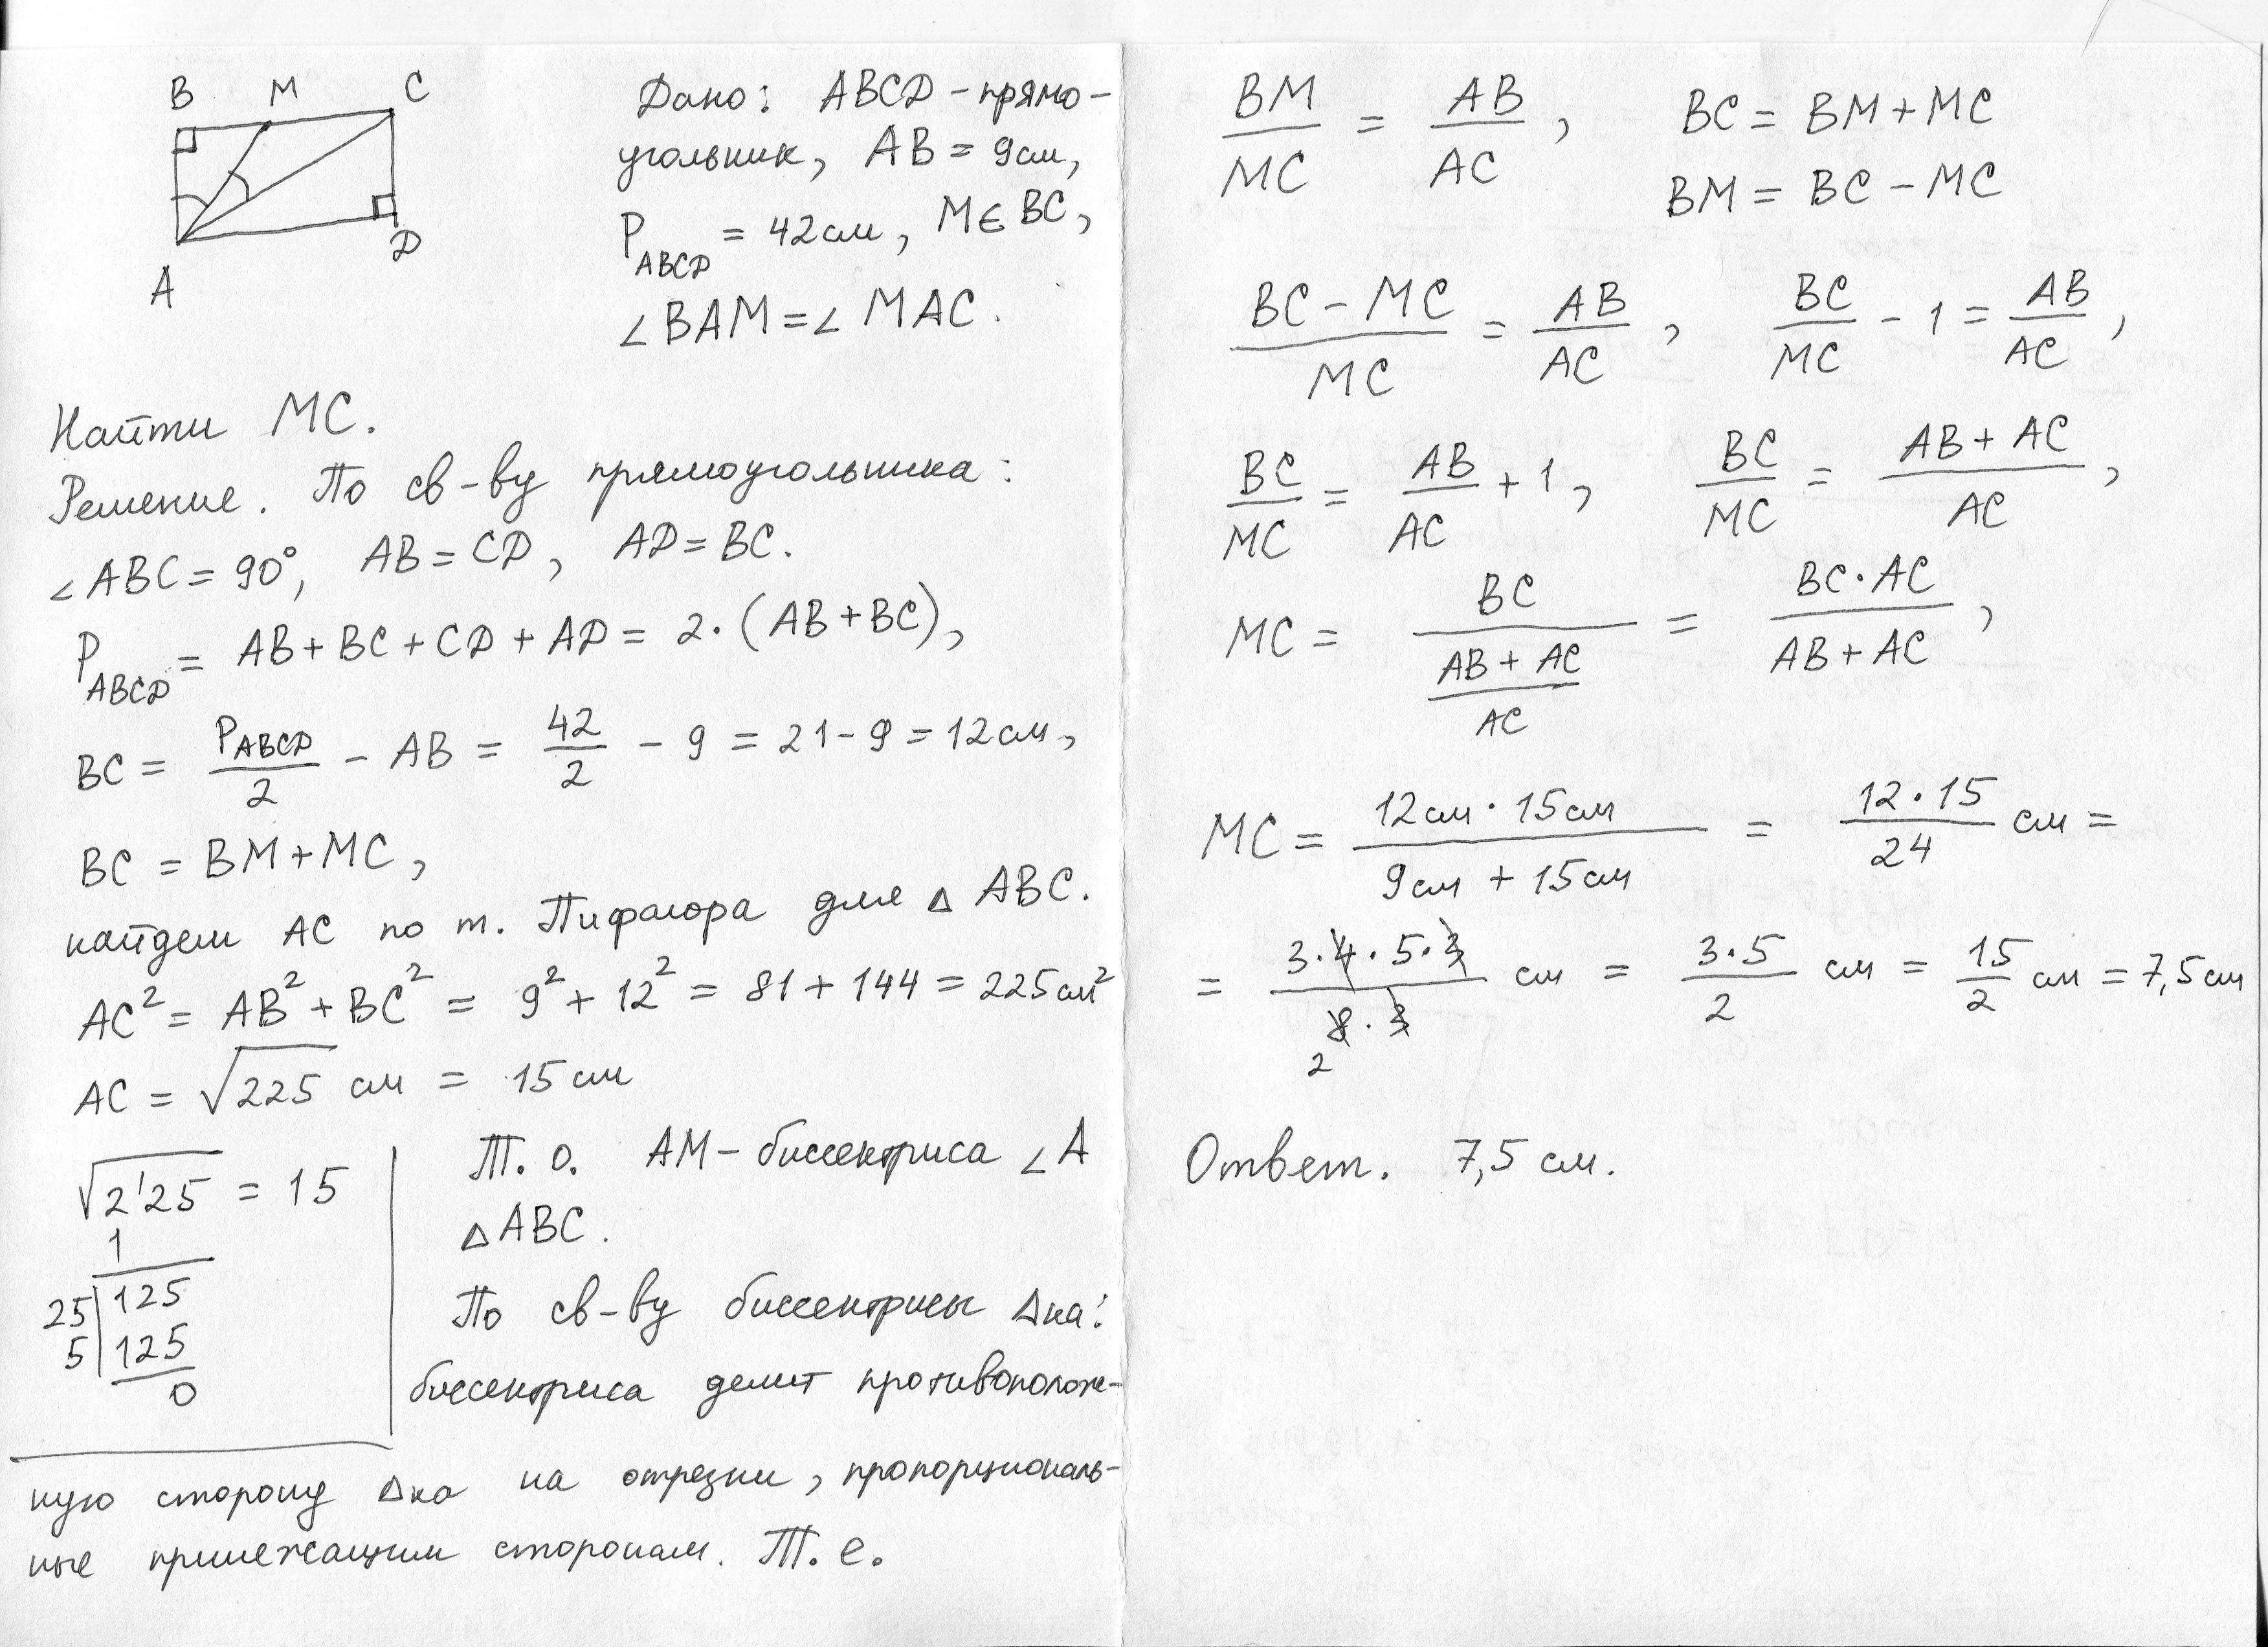 B M C
A D
Дано: ABCD - прямо-
угольник, AB = 9 см,
P_ABCD = 42 см, M ∈ BC,
∠BAM = ∠MAC.
Найти MC.
Решение. По св-ву прямоугольника:
∠ABC = 90°, AB = CD, AD = BC.
P_ABCD = AB + BC + CD + AD = 2 · (AB + BC),
BC = P_ABCD/2 - AB = 42/2 - 9 = 21 - 9 = 12 см,
BC = BM + MC,
найдем AC по т. Пифагора для △ ABC.
AC² = AB² + BC² = 9² + 12² = 81 + 144 = 225 см²
AC = √225 см = 15 см
√2'25 = 15
1
25| 125
5| 125
0
Т. о. AM - биссектриса ∠A
△ABC.
По св-ву биссектрисы △ка:
биссектриса делит противополож-
ную сторону △ка на отрезки, пропорциональ-
ные прилежащим сторонам. Т. е.
BM/MC = AB/AC, BC = BM + MC
BM = BC - MC
(BC - MC)/MC = AB/AC, BC/MC - 1 = AB/AC,
BC/MC = AB/AC + 1, BC/MC = (AB + AC)/AC,
MC = BC/((AB + AC)/AC) = (BC · AC)/(AB + AC),
MC = (12 см · 15 см)/(9 см + 15 см) = (12 · 15)/24 см =
= (3 · 4 · 5 · 3)/(8 · 3) см = (3 · 5)/2 см = 15/2 см = 7,5 см
2
Ответ. 7,5 см.